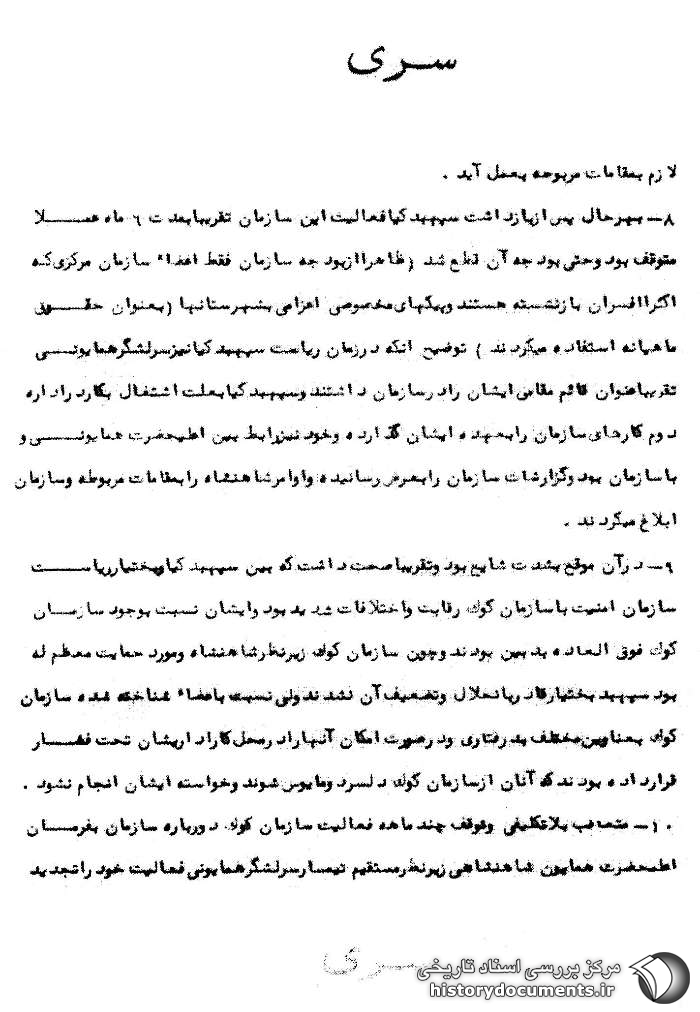 سری
لازم بمقامات مربوطه بعمل آید .
۸ـ بهرحال پس ازبازداشت سپهبد کیا فعالیت این سازمان تقریبابمدت ۶ ماه عمـــلا
متوقف بود وحتی بودجه آن قطع شد (ظاهرا ازبودجه سازمان فقط اعضاء سازمان مرکزی که
اکثرا افسران بازنشسته هستند وپیکهای مخصوصی اعزامی بشهرستانها (بعنوان حقـــوق
ماهیانه استفاده میکردند ) توضیح آنکه درزمان ریاست سپهبد کیانیزسرلشگرهمایونـــی
تقریباعنوان قائم مقامی ایشان رادرسازمان داشتند وسپهبد کیابعلت اشتغال بکاردراداره
دوم کارهای سازمان رابعهده ایشان گذارده وخود نیزرابط بین اعلیحضرت همایونـــی و
باسازمان بود وگزارشات سازمان رابعرض رسانیده واوامرشاهنشاه رابمقامات مربوطه وسازمان
ابلاغ میکردند .
۹ـ درآن موقع بشدت شایع بود وتقریباصحت داشت که بین سپهبد کیاوبختیارریاســـت
سازمان امنیت باسازمان کوک رقابت واختلافات شدید بود وایشان نسبت بوجود سازمـــان
کوک فوق العاده بدبین بودند وچون سازمان کوک زیرنظرشاهنشاه ومورد حمایت معظم له
بود سپهبد بختیارقادربانحلال وتضعیف آن نشدند ولی نسبت باعضاء شناخته شده سازمان
کوک بعناوین مختلف بدرفتاری ودرصورت امکان آنهارادرمحل کاراداریشان تحت فشـــار
قرارداده بودند که آنان ازسازمان کوک دلسرد ومایوس شوند وخواسته ایشان انجام نشود .
۱۰ـ متعاقب بلاتکلیفی وتوقف چند ماهه فعالیت سازمان کوک دوباره سازمان بفرمـــان
اعلیحضرت همایون شاهنشاهی زیرنظرمستقیم تیمسارسرلشگرهمایونی فعالیت خود راتجدید
سری
مرکز بررسی اسناد تاریخی
historydocuments.ir